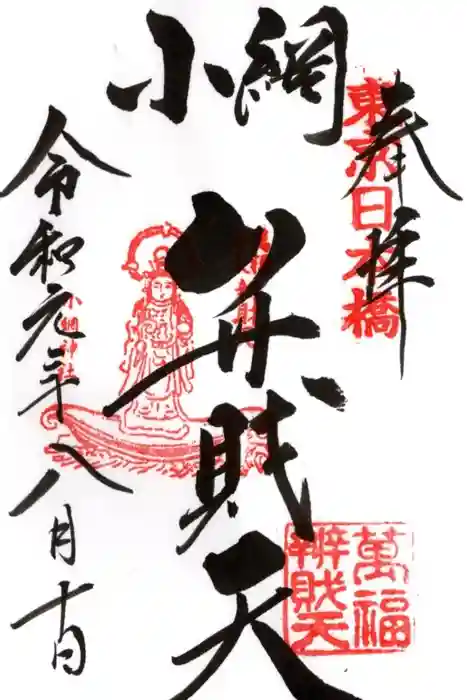 奉拝
東京日本橋
小網
弁財天
萬福
辨財天
小網神社
令和元年八月十日